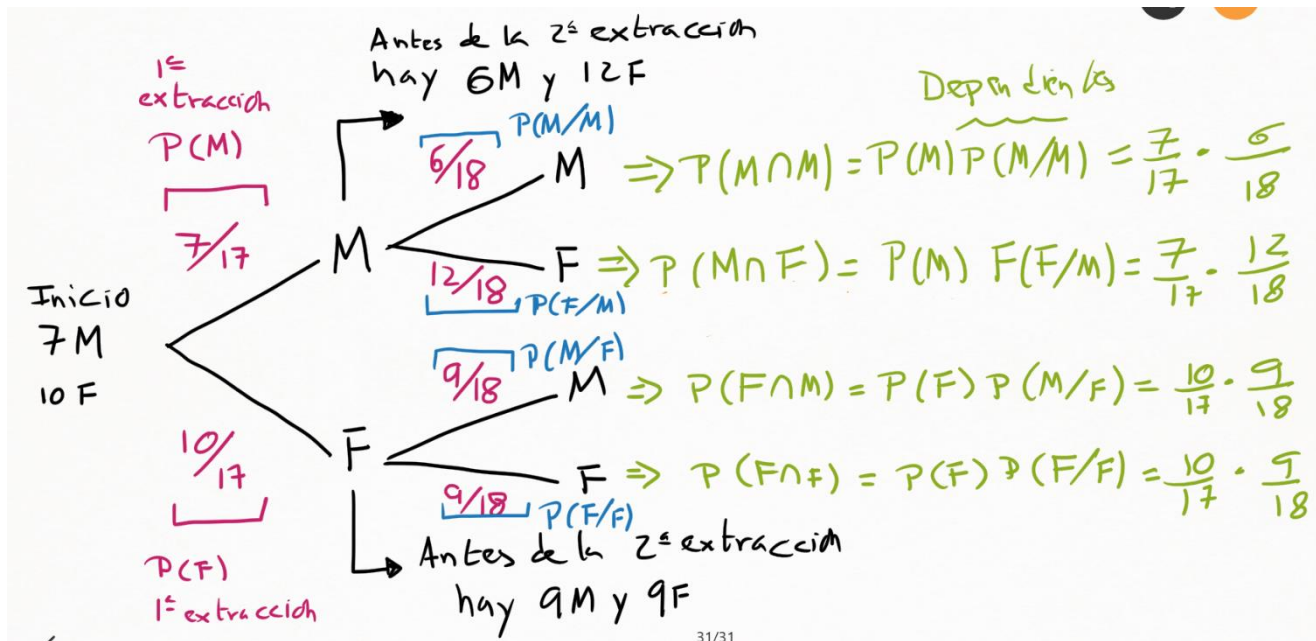 Antes de la 2ª extracción
hay 6M y 12F
1ª
extracción
P(M)
7/17
Inicio
7M
10F
10/17
P(F)
1ª extracción
M
F
6/18 P(M/M)
M
12/18 P(F/M)
F
9/18 P(M/F)
M
9/18 P(F/F)
F
Antes de la 2ª extracción
hay 9M y 9F
Dependientes
⇒ P(M∩M) = P(M) P(M/M) = 7/17 · 6/18
⇒ P(M∩F) = P(M) F(F/M) = 7/17 · 12/18
⇒ P(F∩M) = P(F) P(M/F) = 10/17 · 9/18
⇒ P(F∩F) = P(F) P(F/F) = 10/17 · 9/18
31/31